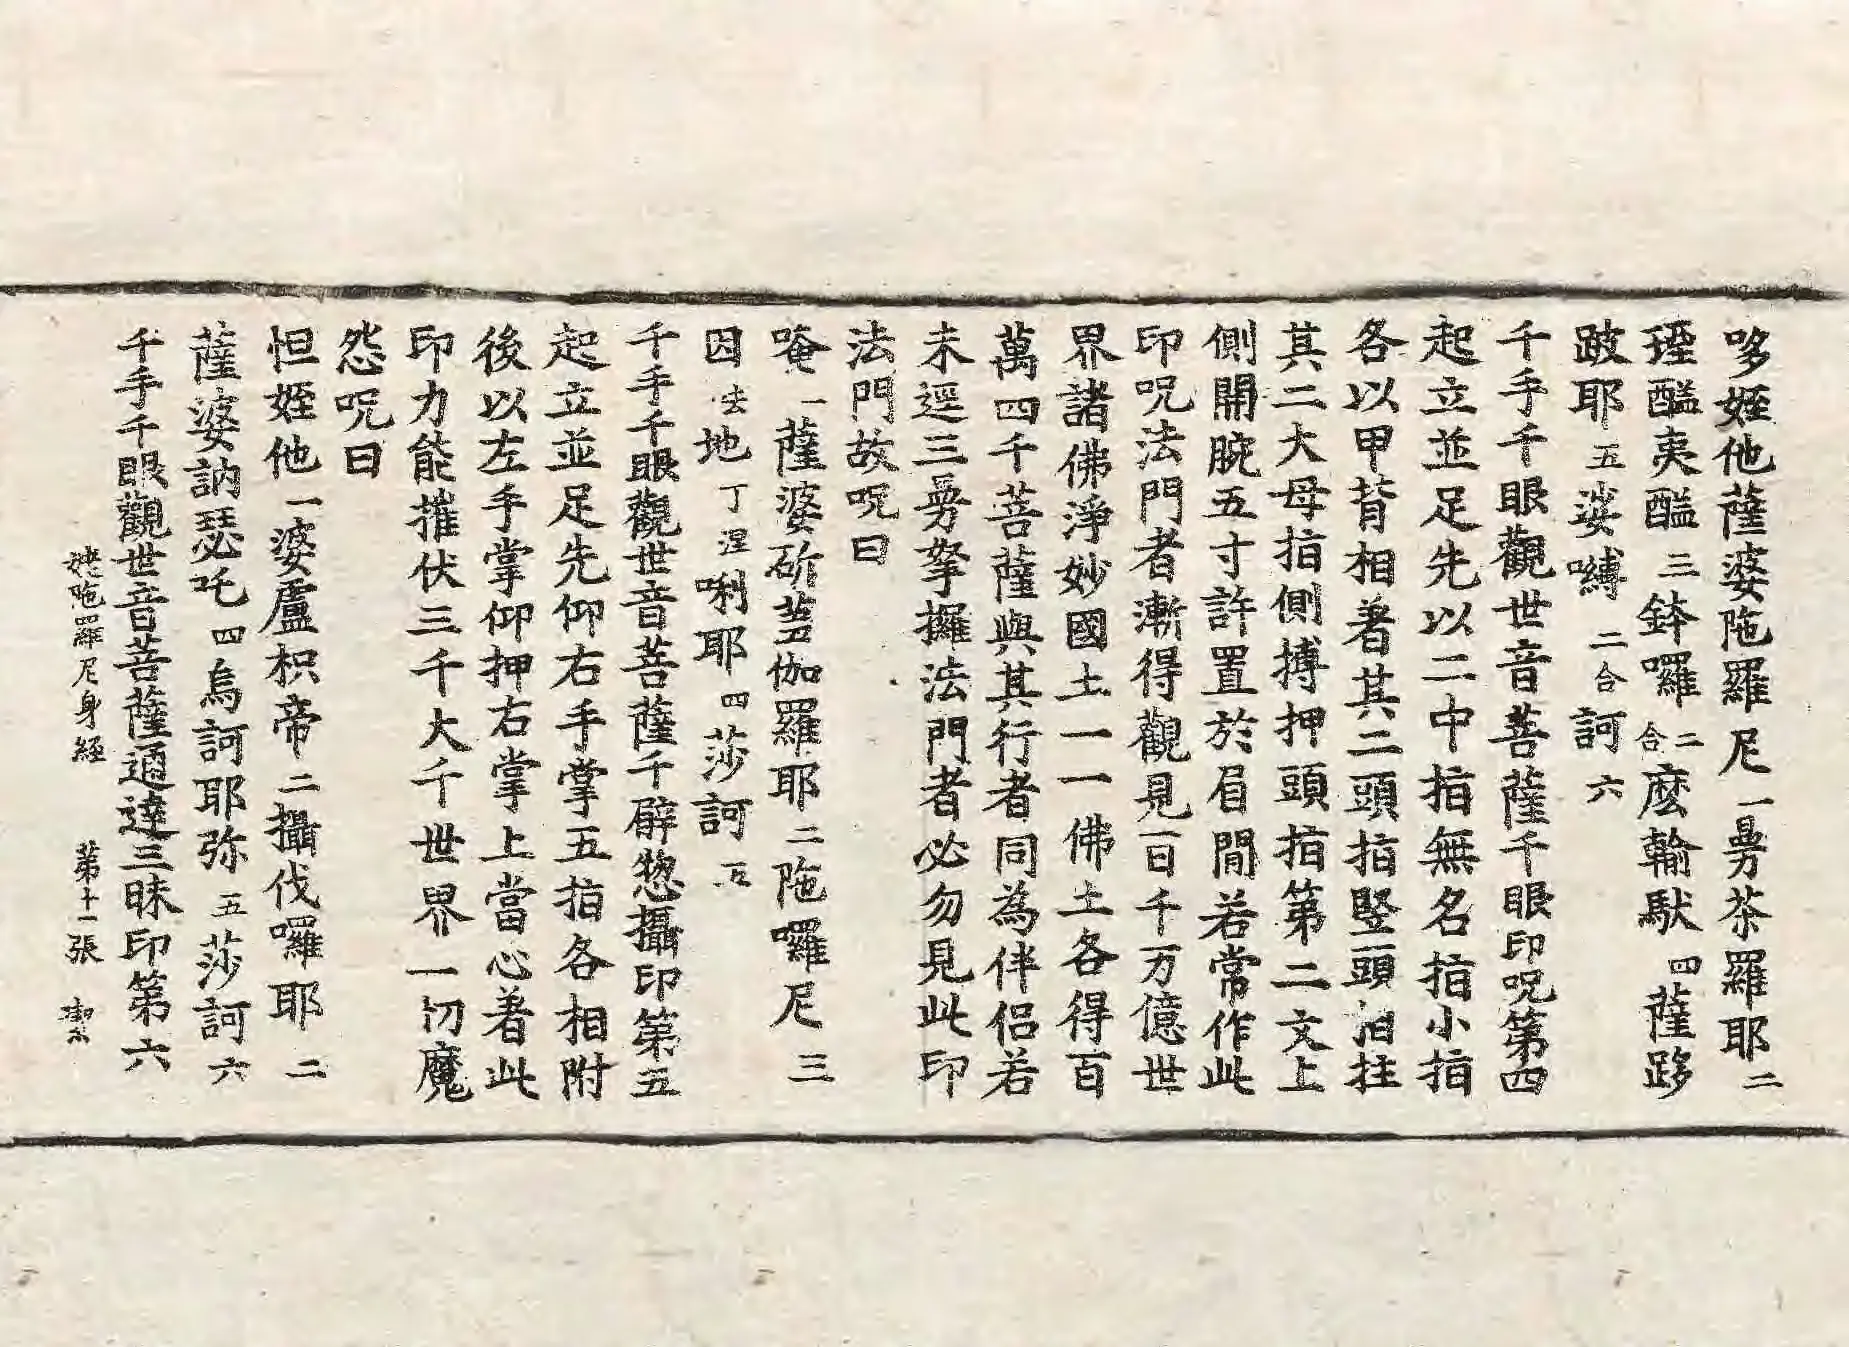 哆姪他薩婆陁羅尼一曼茶羅耶二
瑿醯夷醯三鉢囉二合麽輸馱四薩跢
跛耶五娑嚩二合訶六
千手千眼觀世音菩薩千眼印呪第四
起立並足先以二中指無名指小指
各以甲背相著其二頭指竪頭相拄
其二大母指側搏押頭指第二文上
側開腕五寸許置於眉閒若常作此
印呪法門者漸得觀見一百千万億世
界諸佛淨妙國土一一佛土各得百
萬四千菩薩與其行者同為伴侶若
未逕三曼拏攞法門者必勿見此印
法門故呪曰
唵一薩婆斫芻伽羅耶二陁囉尼三
因去地丁涅唎耶四莎訶五
千手千眼觀世音菩薩千臂惣攝印第五
起立並足先仰右手掌五指各相附
後以左手掌仰押右掌上當心著此
印力能摧伏三千大千世界一切魔
怨呪曰
怛姪他一婆盧枳帝二攝伐囉耶二
薩婆訥瑟吒四烏訶耶弥五莎訶六
千手千眼觀世音菩薩通達三昧印第六
姥陁羅尼身經　第十一張